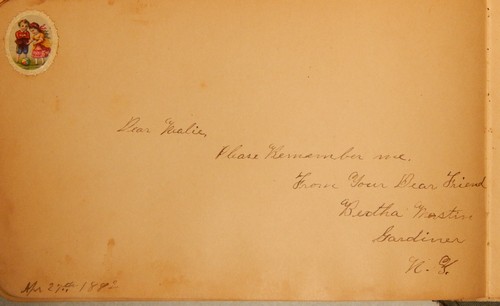 Dear
Please Remember me.
From Your Dear Friend
Bertha
Gardiner
N. Y.
Apr 27th